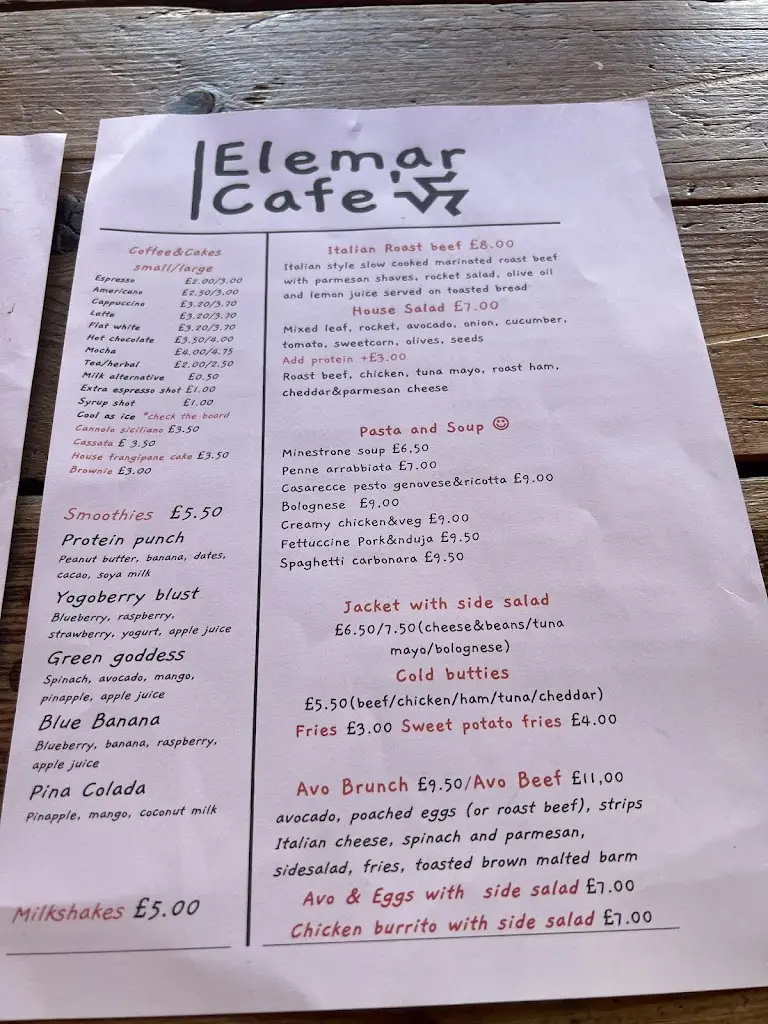 Elemar
Cafe
Coffee&Cakes
small/large
Espresso £2.00/3.00
Americano £2.50/3.00
Cappuccino £3.20/3.70
Latte £3.20/3.70
Flat white £3.20/3.70
Hot chocolate £3.50/4.00
Mocha £4.00/4.75
Tea/herbal £2.00/2.50
Milk alternative £0.50
Extra espresso shot £1.00
Syrup shot £1.00
Cool as ice *check the board
Cannolo siciliano £3.50
Cassata £ 3.50
House frangipane cake £3.50
Brownie £3.00
Smoothies £5.50
Protein punch
Peanut butter, banana, dates,
cacao, soya milk
Yogoberry blust
Blueberry, raspberry,
strawberry, yogurt, apple juice
Green goddess
Spinach, avocado, mango,
pinapple, apple juice
Blue Banana
Blueberry, banana, raspberry,
apple juice
Pina Colada
Pinapple, mango, coconut milk
Milkshakes £5.00
Italian Roast beef £8.00
Italian style slow cooked marinated roast beef
with parmesan shaves, rocket salad, olive oil
and lemon juice served on toasted bread
House Salad £7.00
Mixed leaf, rocket, avocado, onion, cucumber,
tomato, sweetcorn, olives, seeds
Add protein +£3.00
Roast beef, chicken, tuna mayo, roast ham,
cheddar&parmesan cheese
Pasta and Soup ☺
Minestrone soup £6,50
Penne arrabbiata £7.00
Casarecce pesto genovese&ricotta £9.00
Bolognese £9,00
Creamy chicken&veg £9.00
Fettuccine Pork&nduja £9.50
Spaghetti carbonara £9.50
Jacket with side salad
£6.50/7.50(cheese&beans/tuna
mayo/bolognese)
Cold butties
£5.50(beef/chicken/ham/tuna/cheddar)
Fries £3.00 Sweet potato fries £4.00
Avo Brunch £9.50/Avo Beef £11,00
avocado, poached eggs (or roast beef), strips
Italian cheese, spinach and parmesan,
sidesalad, fries, toasted brown malted barm
Avo & Eggs with side salad £7.00
Chicken burrito with side salad £7.00